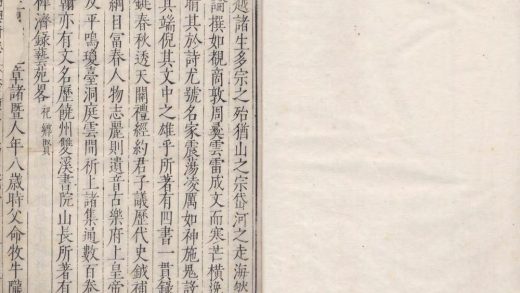 越諸生多宗之殆猶山之宗岱河之走海然
論撰如覩商敦周彝雲雷成文而寒芒橫逸
睛其於詩尤號名家震蕩凌厲如神施鬼設
其端倪其文中之雄乎所著有四書一貫錄
鈇春秋透天關禮經約君子議歷代史鉞補
綱目富春人物志麗則遺音古樂府上皇帝
及平鳴瓊臺洞庭雲間祈上諸集通數百
翰亦有文名歷饒州雙溪書院山長所著有
稗濟錄藝苑畧 祀鄉賢
章諸暨人年八歲時父命牧牛隴